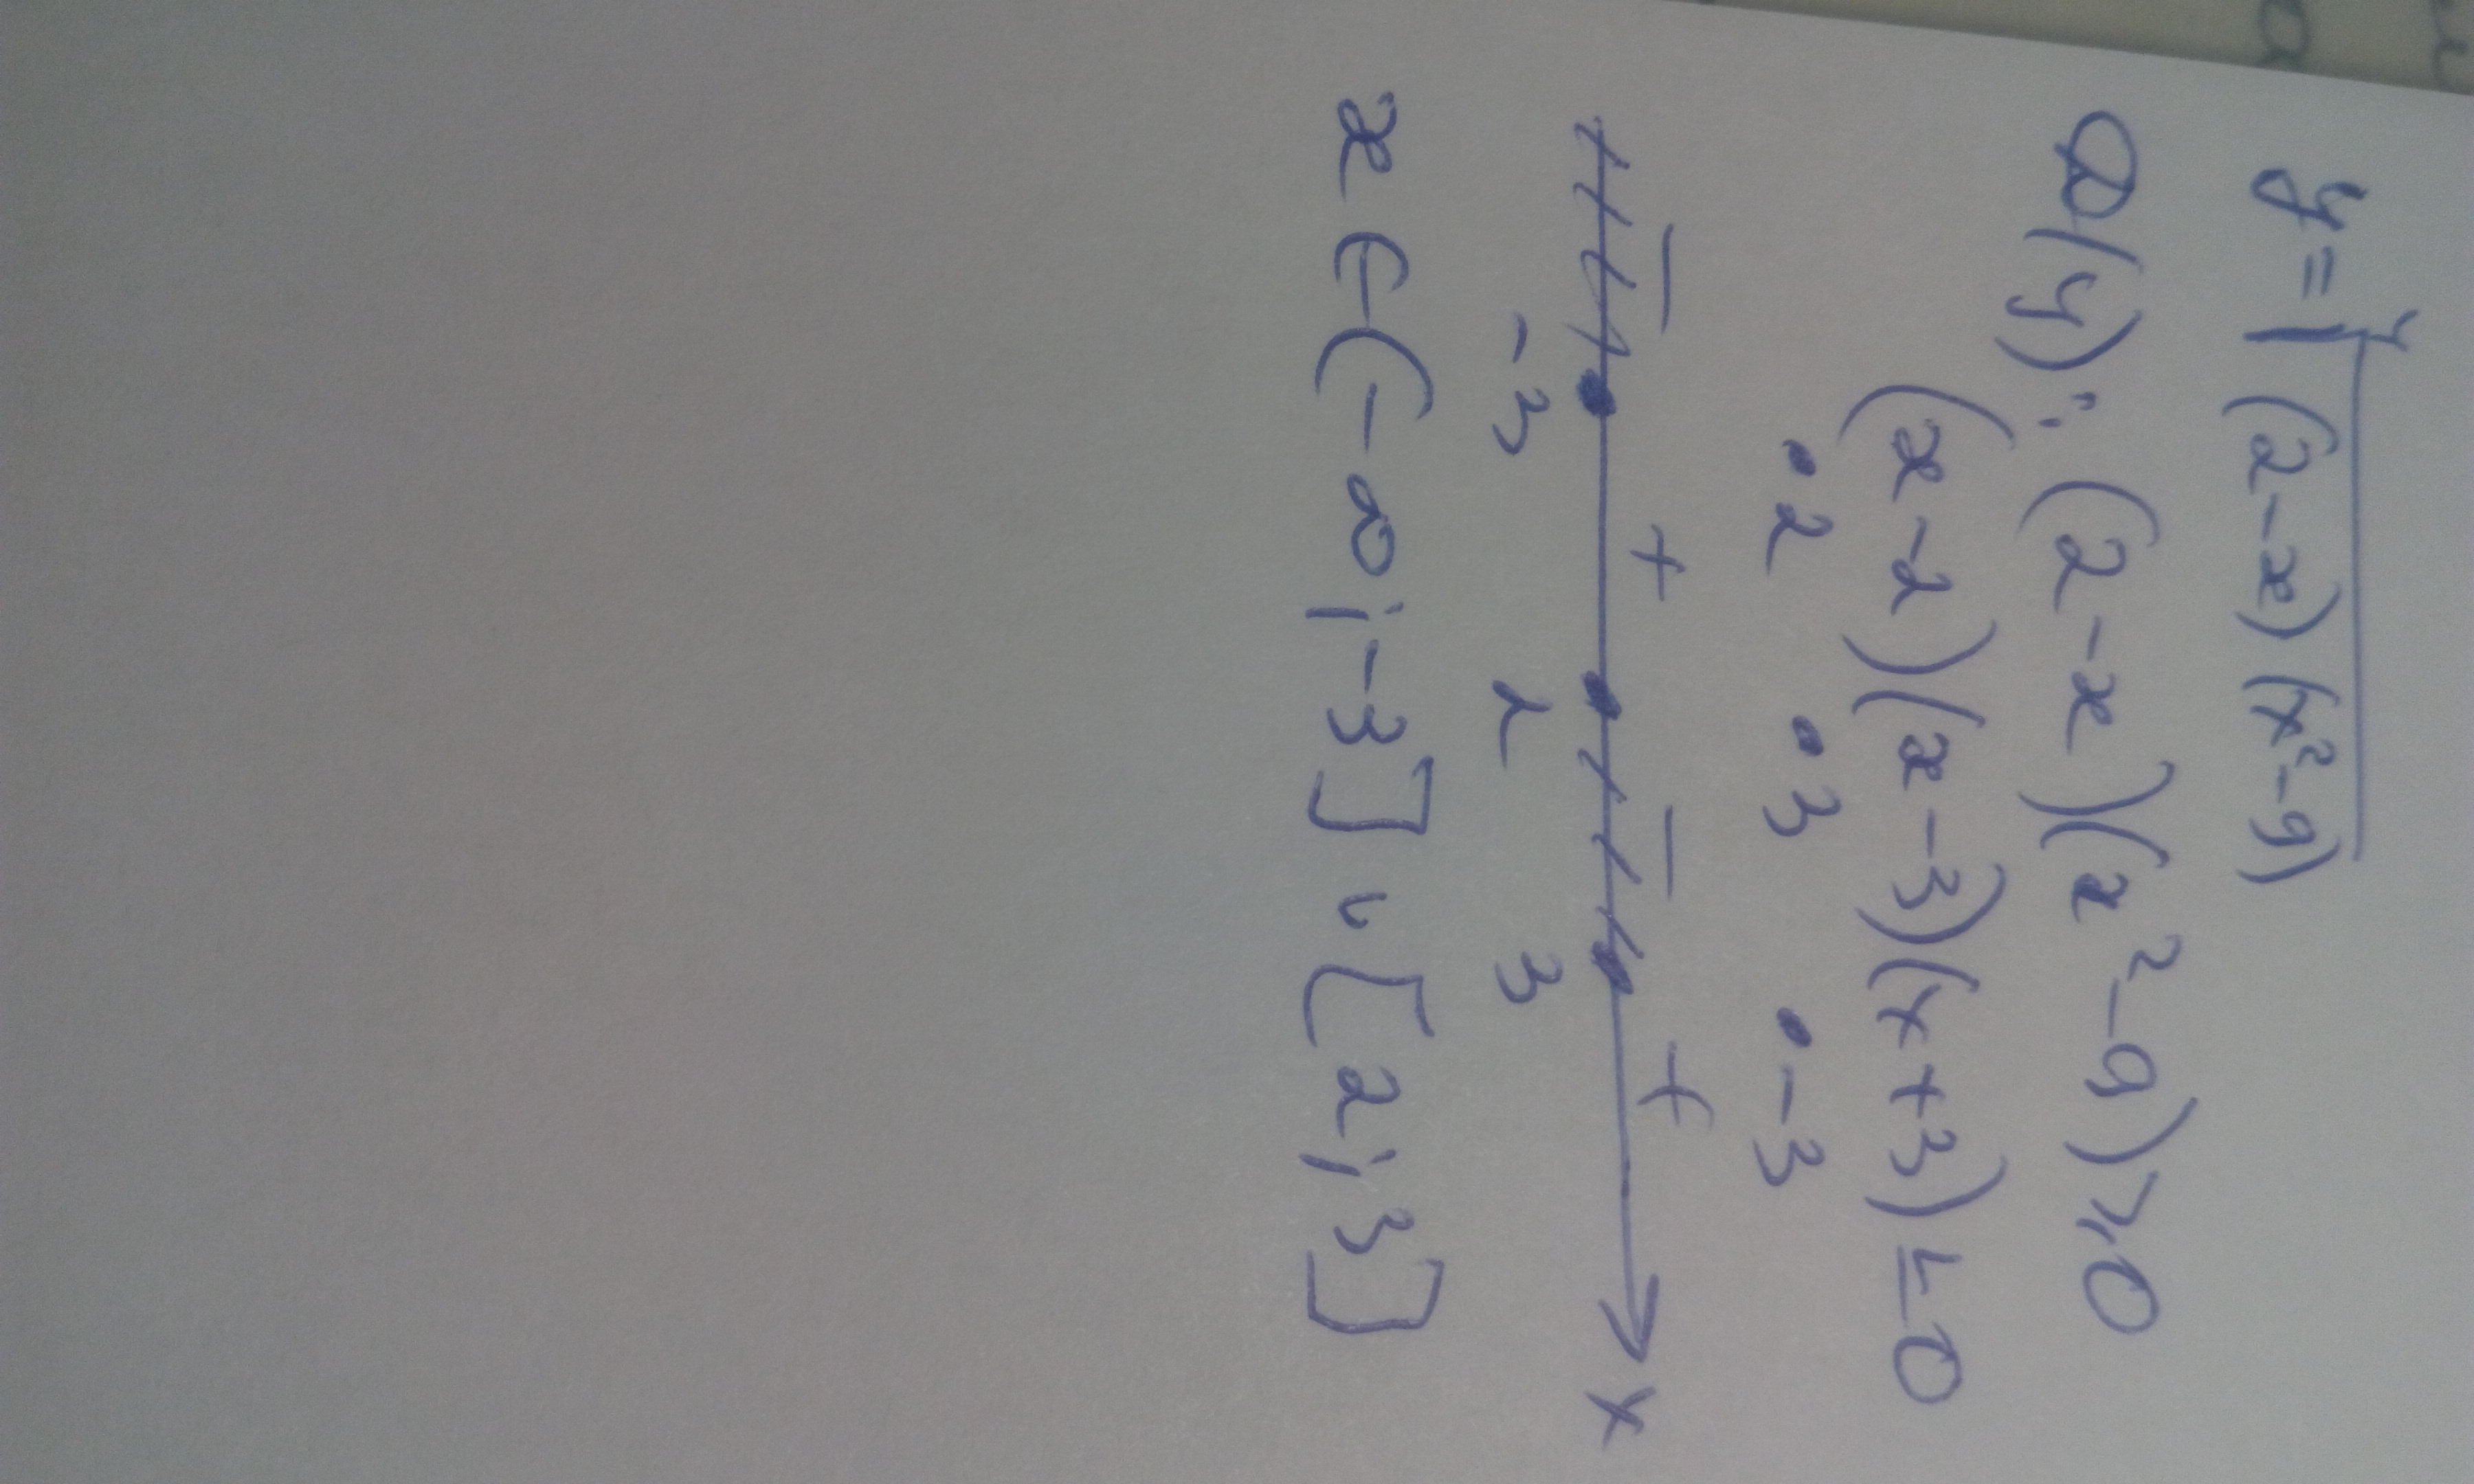 y = ⁴√(2-x)(x²-9)
D(y): (2-x)(x²-9) ≥ 0
(x-2)(x-3)(x+3) ≤ 0
• 2 • 3 • -3
- + - +
-3 2 3 x
x ∈ (-∞; -3] ∪ [2; 3]